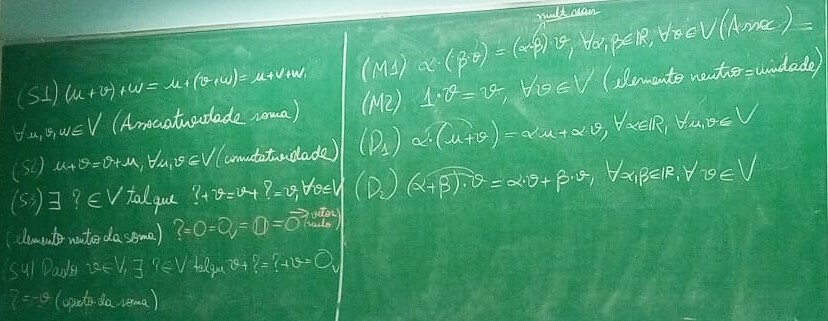 (S1) (u+v)+w = u+(v+w) = u+v+w,
∀u,v,w∈V (Associatividade soma)
(S2) u+v=v+u, ∀u,v∈V (comutatividade)
(S3) ∃ ? ∈ V tal que ?+v=v+?=v, ∀v∈V
(elemento neutro da soma) ?=0=0_V=𝟘=0 → vetor nulo
(S4) Dado v∈V, ∃ ?∈V tal que v+?=?+v=0_V
?=-v (oposto da soma)
mult. reais
(M1) α·(β·v)=(α·β)·v, ∀α,β∈ℝ, ∀v∈V (Assoc)=
(M2) 1·v=v, ∀v∈V (elemento neutro=unidade)
(D1) α·(u+v)=αu+αv, ∀α∈ℝ, ∀u,v∈V
(D2) (α+β)·v=α·v+β·v, ∀α,β∈ℝ, ∀v∈V